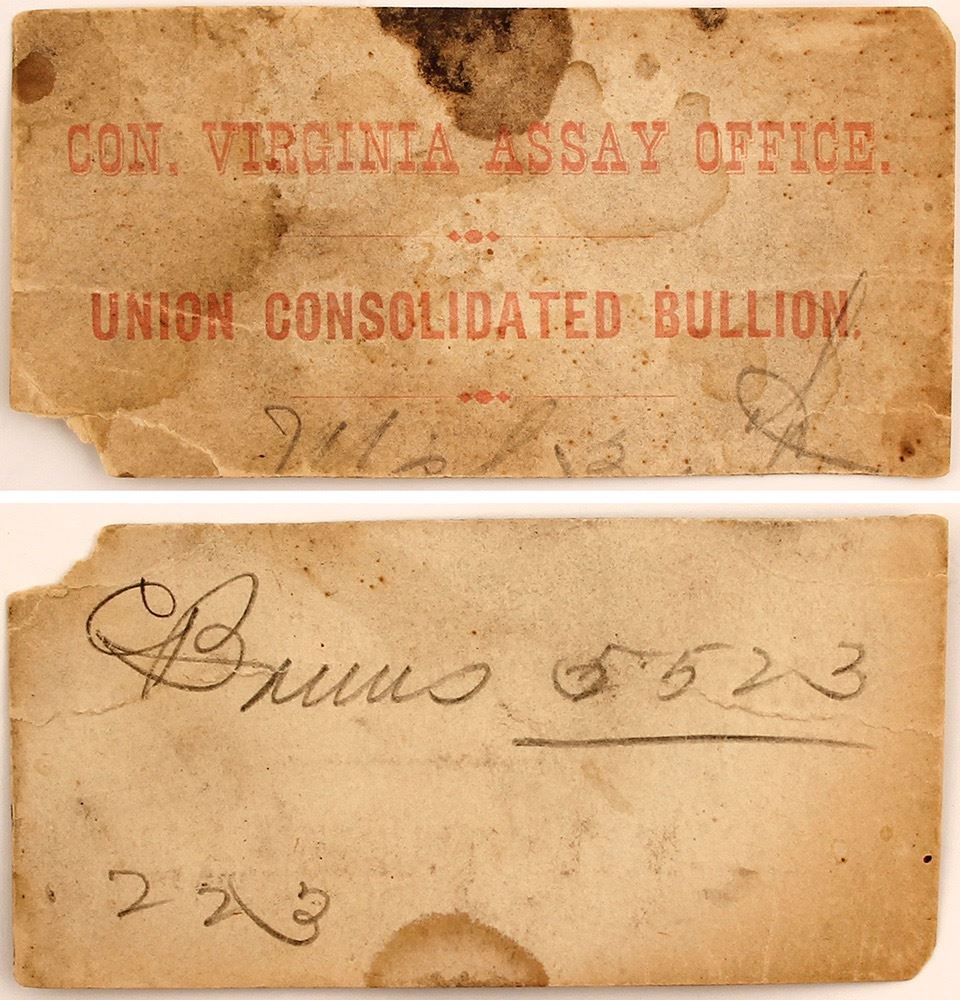 CON. VIRGINIA ASSAY OFFICE.
UNION CONSOLIDATED BULLION.
5523
223